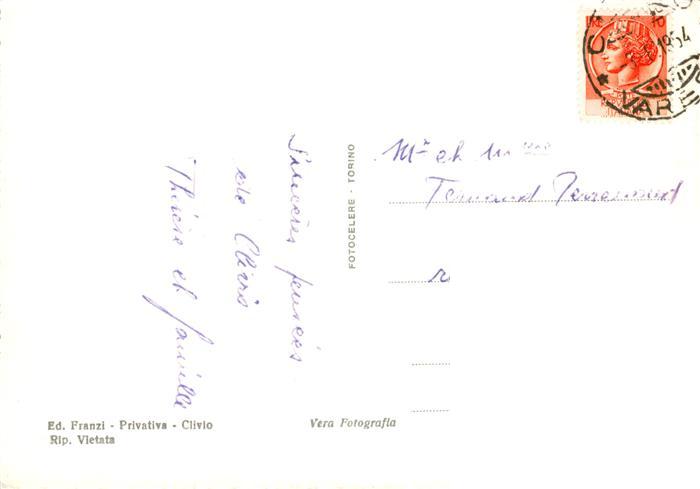 LIRE 10
1954
VARE
Sincères pensées
de Clivio
Thérèse et famille
FOTOCELERE - TORINO
Mr et Mme
Fernand
Ed. Franzi - Privativa - Clivio
Rip. Vietata
Vera Fotografia